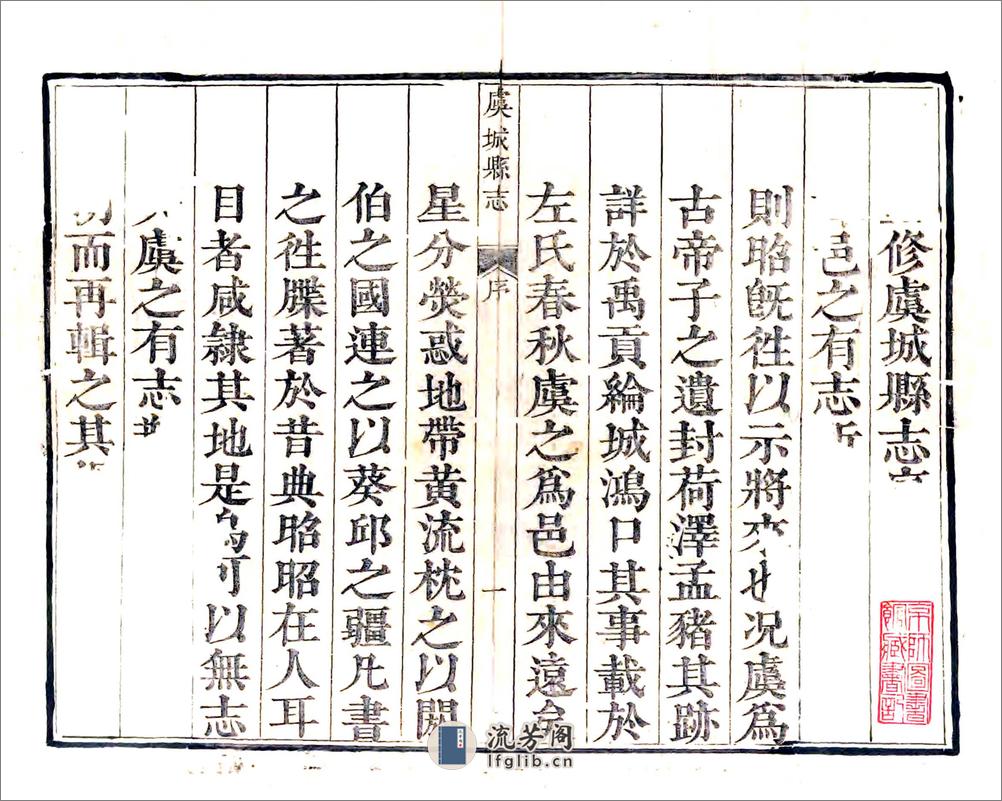 修虞城縣志
邑之有志
則昭旣徃以示將來也况虞爲
古帝子之遺封荷澤孟豬其跡
詳於禹貢綸城鴻口其事載於
左氏春秋虞之爲邑由來遠矣
虞城縣志 序 一
星分熒惑地帶黄流枕之以閼
伯之國連之以葵邱之疆凡書
之徃牒著於昔典昭昭在人耳
目者咸隷其地是烏可以無志
虞之有志
而再輯之其
京師圖書
館藏書記
流芳阁
lfglib.cn